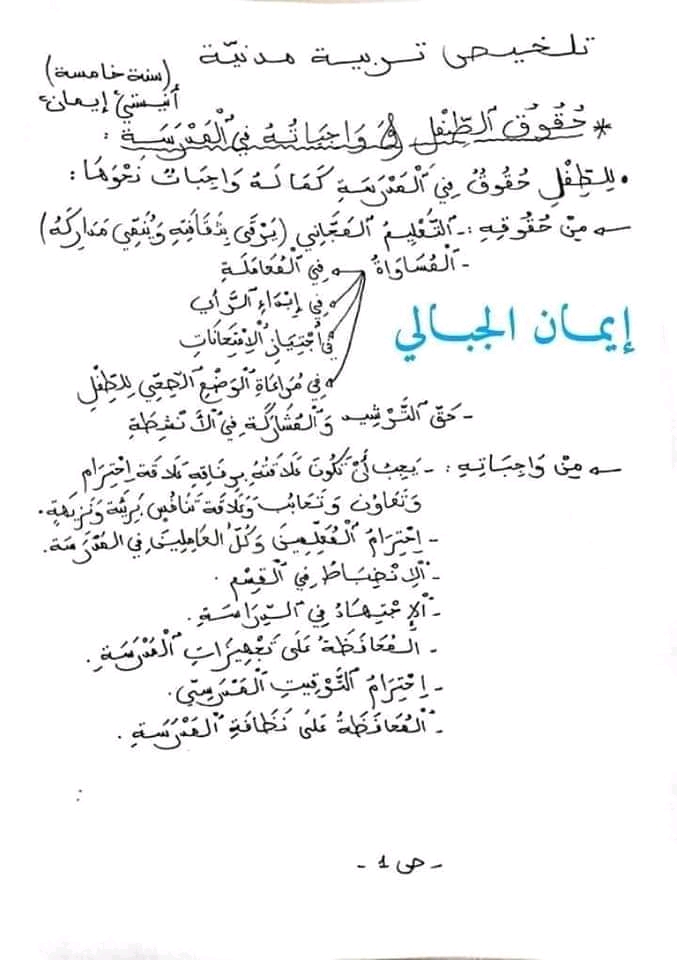 تلخيص تربية مدنيّة
(سنة خامسة)
أنيستي إيمان
* حُقُوقُ ٱلطِّفْلِ وَ وَاجِبَاتُهُ فِي ٱلْمَدْرَسَةِ :
• لِلطِّفْلِ حُقُوقٌ فِي ٱلْمَدْرَسَةِ كَمَا لَهُ وَاجِبَاتٌ نَحْوَهَا :
مِنْ حُقُوقِهِ : - ٱلتَّعْلِيمُ ٱلْمَجَّانِي (يَرْقَى بِثَقَافَتِهِ وَيُنَمِّي مَدَارِكَهُ)
- ٱلْمُسَاوَاةُ فِي ٱلْمُعَامَلَةِ
فِي إِبْدَاءِ ٱلرَّأْيِ
فِي ٱجْتِيَازِ ٱلْاِمْتِحَانَاتِ
فِي مُرَاعَاةِ ٱلْوَضْعِ ٱلصِّحِّي لِلطِّفْلِ
إيمان الجبالي
- حَقّ ٱلتَّرْشِيحِ وَٱلْمُشَارَكَةِ فِي ٱلْأَنْشِطَةِ
مِنْ وَاجِبَاتِهِ : - يَجِبُ أَنْ تَكُونَ عَلَاقَتُهُ بِرِفَاقِهِ عَلَاقَةَ اِحْتِرَامٍ
وَتَعَاوُنٍ وَتَحَابُبٍ وَعَلَاقَةَ تَنَافُسٍ بَرِيئَةٍ وَنَزِيهَةٍ.
- اِحْتِرَامُ ٱلْمُعَلِّمِينَ وَكُلِّ ٱلعَامِلِينَ فِي ٱلمَدْرَسَة.
- ٱلْاِنْضِبَاطُ فِي ٱلْقِسْمِ .
- ٱلْاِجْتِهَادُ فِي ٱلدِّرَاسَةِ .
- ٱلمُحَافَظَةُ عَلَى تَجْهِيزَاتِ ٱلْمَدْرَسَةِ .
- اِحْتِرَامُ ٱلتَّوْقِيتِ ٱلْمَدْرَسِيّ .
- ٱلْمُحَافَظَةُ عَلَى نَظَافَةِ ٱلْمَدْرَسَةِ .
- ص 1 -